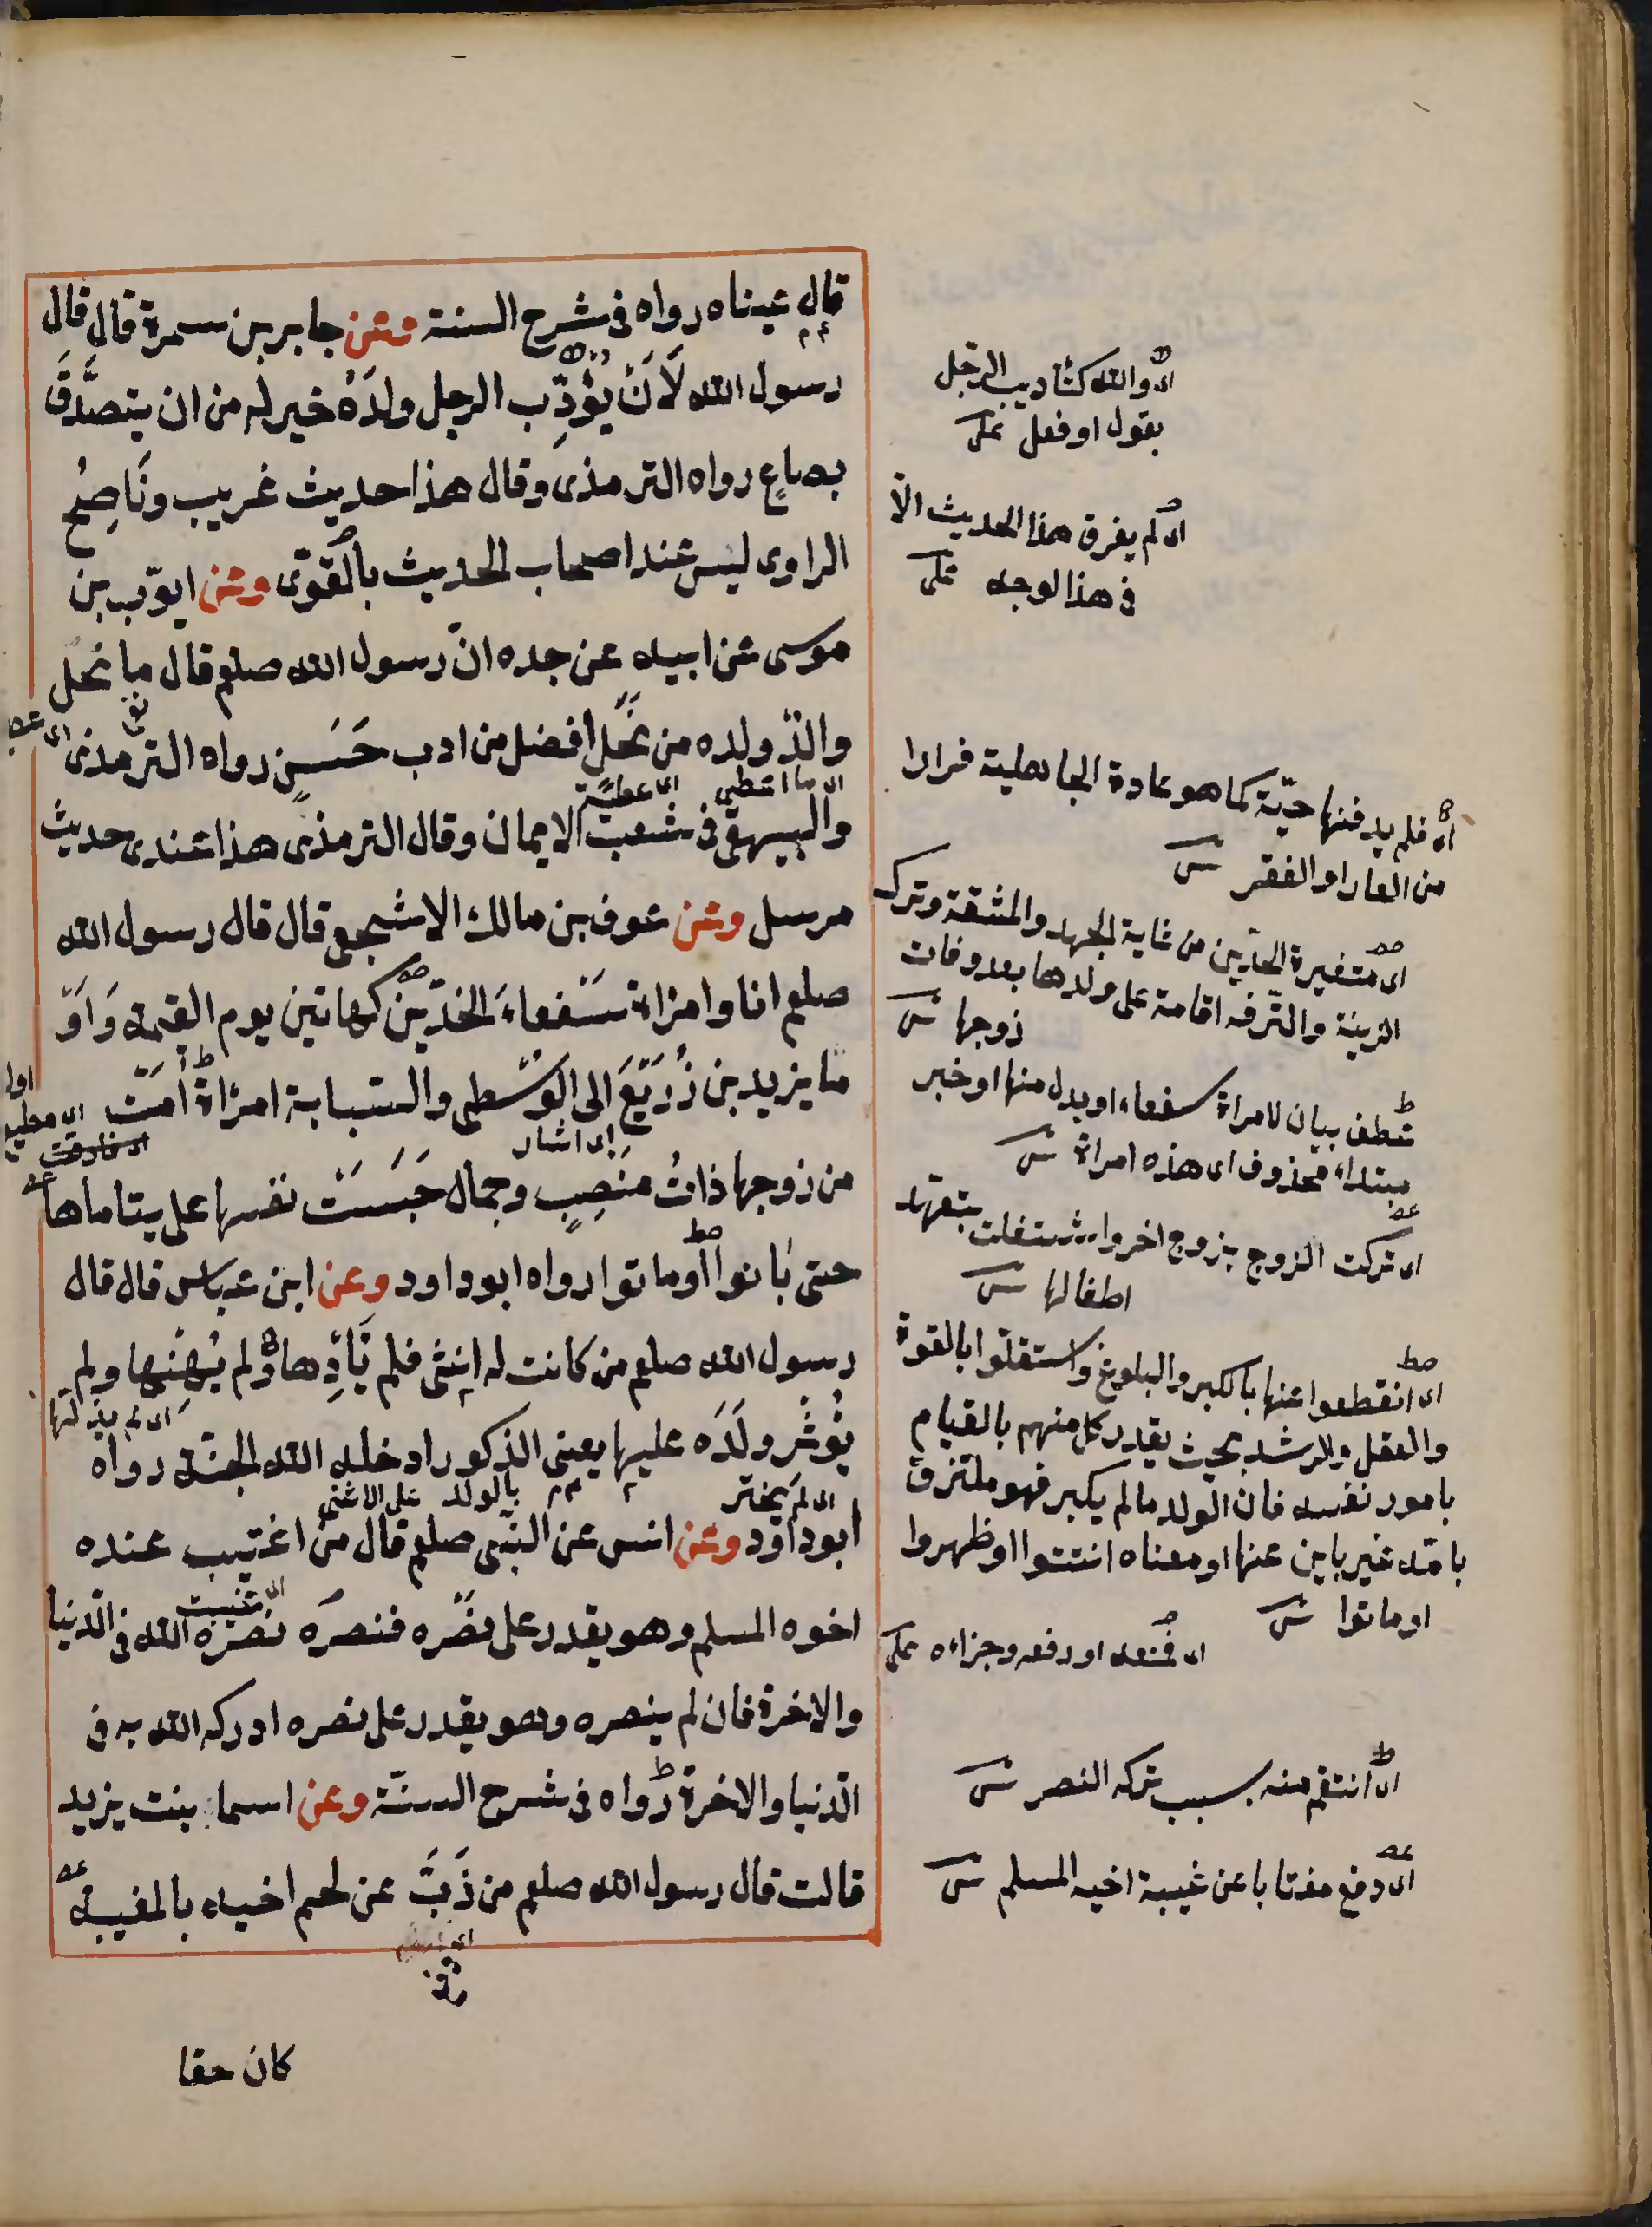 قال عيناه رواه فى شرح السنة وعن جابر بن سمرة قال قال
رسول الله لَاَنْ يُؤَدِّب الرجل ولدَهُ خير له من ان يتصدَّقَ
بصاعٍ رواه الترمذى وقال هذا حديث غريب ونَاصِحُ
الراوى ليس عند اصحاب الحديث بالقوى وعن ايوّب بن
موسى عن ابيه عن جده انّ رسول الله صلعم قال ما نحل
والدٌ ولده من نحلٍ افضل من ادب حَسَنٍ رواه الترمذى
اى ما اعطى اى عطيّة
والبيهقى فى شعب الايمان وقال الترمذى هذا عندى حديث
مرسل وعن عوف بن مالك الاشجعى قال قال رسول الله
صلعم انا وامراة سَفعاءَ الخدّين كهاتين يوم القيمة وَاَوْ
ما يزيد بن زُرَيْعَ الى الوسْطى والسّبابة امراة اَمَتْ
اى اشار
من زوجها ذاتُ مَنصِبٍ وجمال حَبَسَتْ نفسها على يتاماها
حتى بانوا او ماتوا رواه ابو داود وعن ابن عباس قال قال
رسول الله صلعم من كانت له انثى فلم يَأدِها ولم يُهِنْها ولم
اى لم يذلّها
يُؤثر ولَدَه عليها يعنى الذكور ادخله الله الجنّة رواه
اى لم يختر بالولد على الانثى
ابو داود وعن انس عن النبّى صلعم قال من اغتيب عنده
اخوه المسلم وهو يقدر على نصَره فنصرَه نصَرَه الله فى الدّنيا
والاخرة فان لم ينصره وهو يقدر على نصره ادركه الله به فى
الدّنيا والاخرة رواه فى شرح السنّة وعن اسماء بنت يزيد
قالت قال رسول الله صلعم من ذَبَّ عن لحم اخيه بالمغيبة
كان حقا
اى والله كتأديب الرجل
بقول او فعل على
اى لم يعرف هذا الحديث الاّ
فى هذا لوجه على
اى فلم يدفنها حيّة كما هو عادة الجاهلية فرارا
من العار او الفقر ش
اى متغيرة الخدّين من غاية الجهد والمشقة وترك
الزينة والترفه اقامة على ولدها بعد وفات
زوجها ش
عطف بيان لامراة سفعاء او بدل منها او خبر
مبتداء محذوف اى هذه امراة ش
اى تركت الزوج بزوج اخر واشتغلت بتعهد
اطفالها ش
اى انقطعوا عنها بالكبر والبلوغ واستقلّوا بالقوة
والعقل والرشد بحيث يقدر كل منهم بالقيام
بامور نفسه فان الولد مالم يكبر فهو ملتزق
بامّه غير باين عنها او معناه انتتوا او ظهروا
او ماتوا ش
اى فمنعه او دفعه وجزاءه على
اى انتقم منه بسبب تركه النصر ش
اى دفع مغتابا عن غيبة اخيه المسلم ش